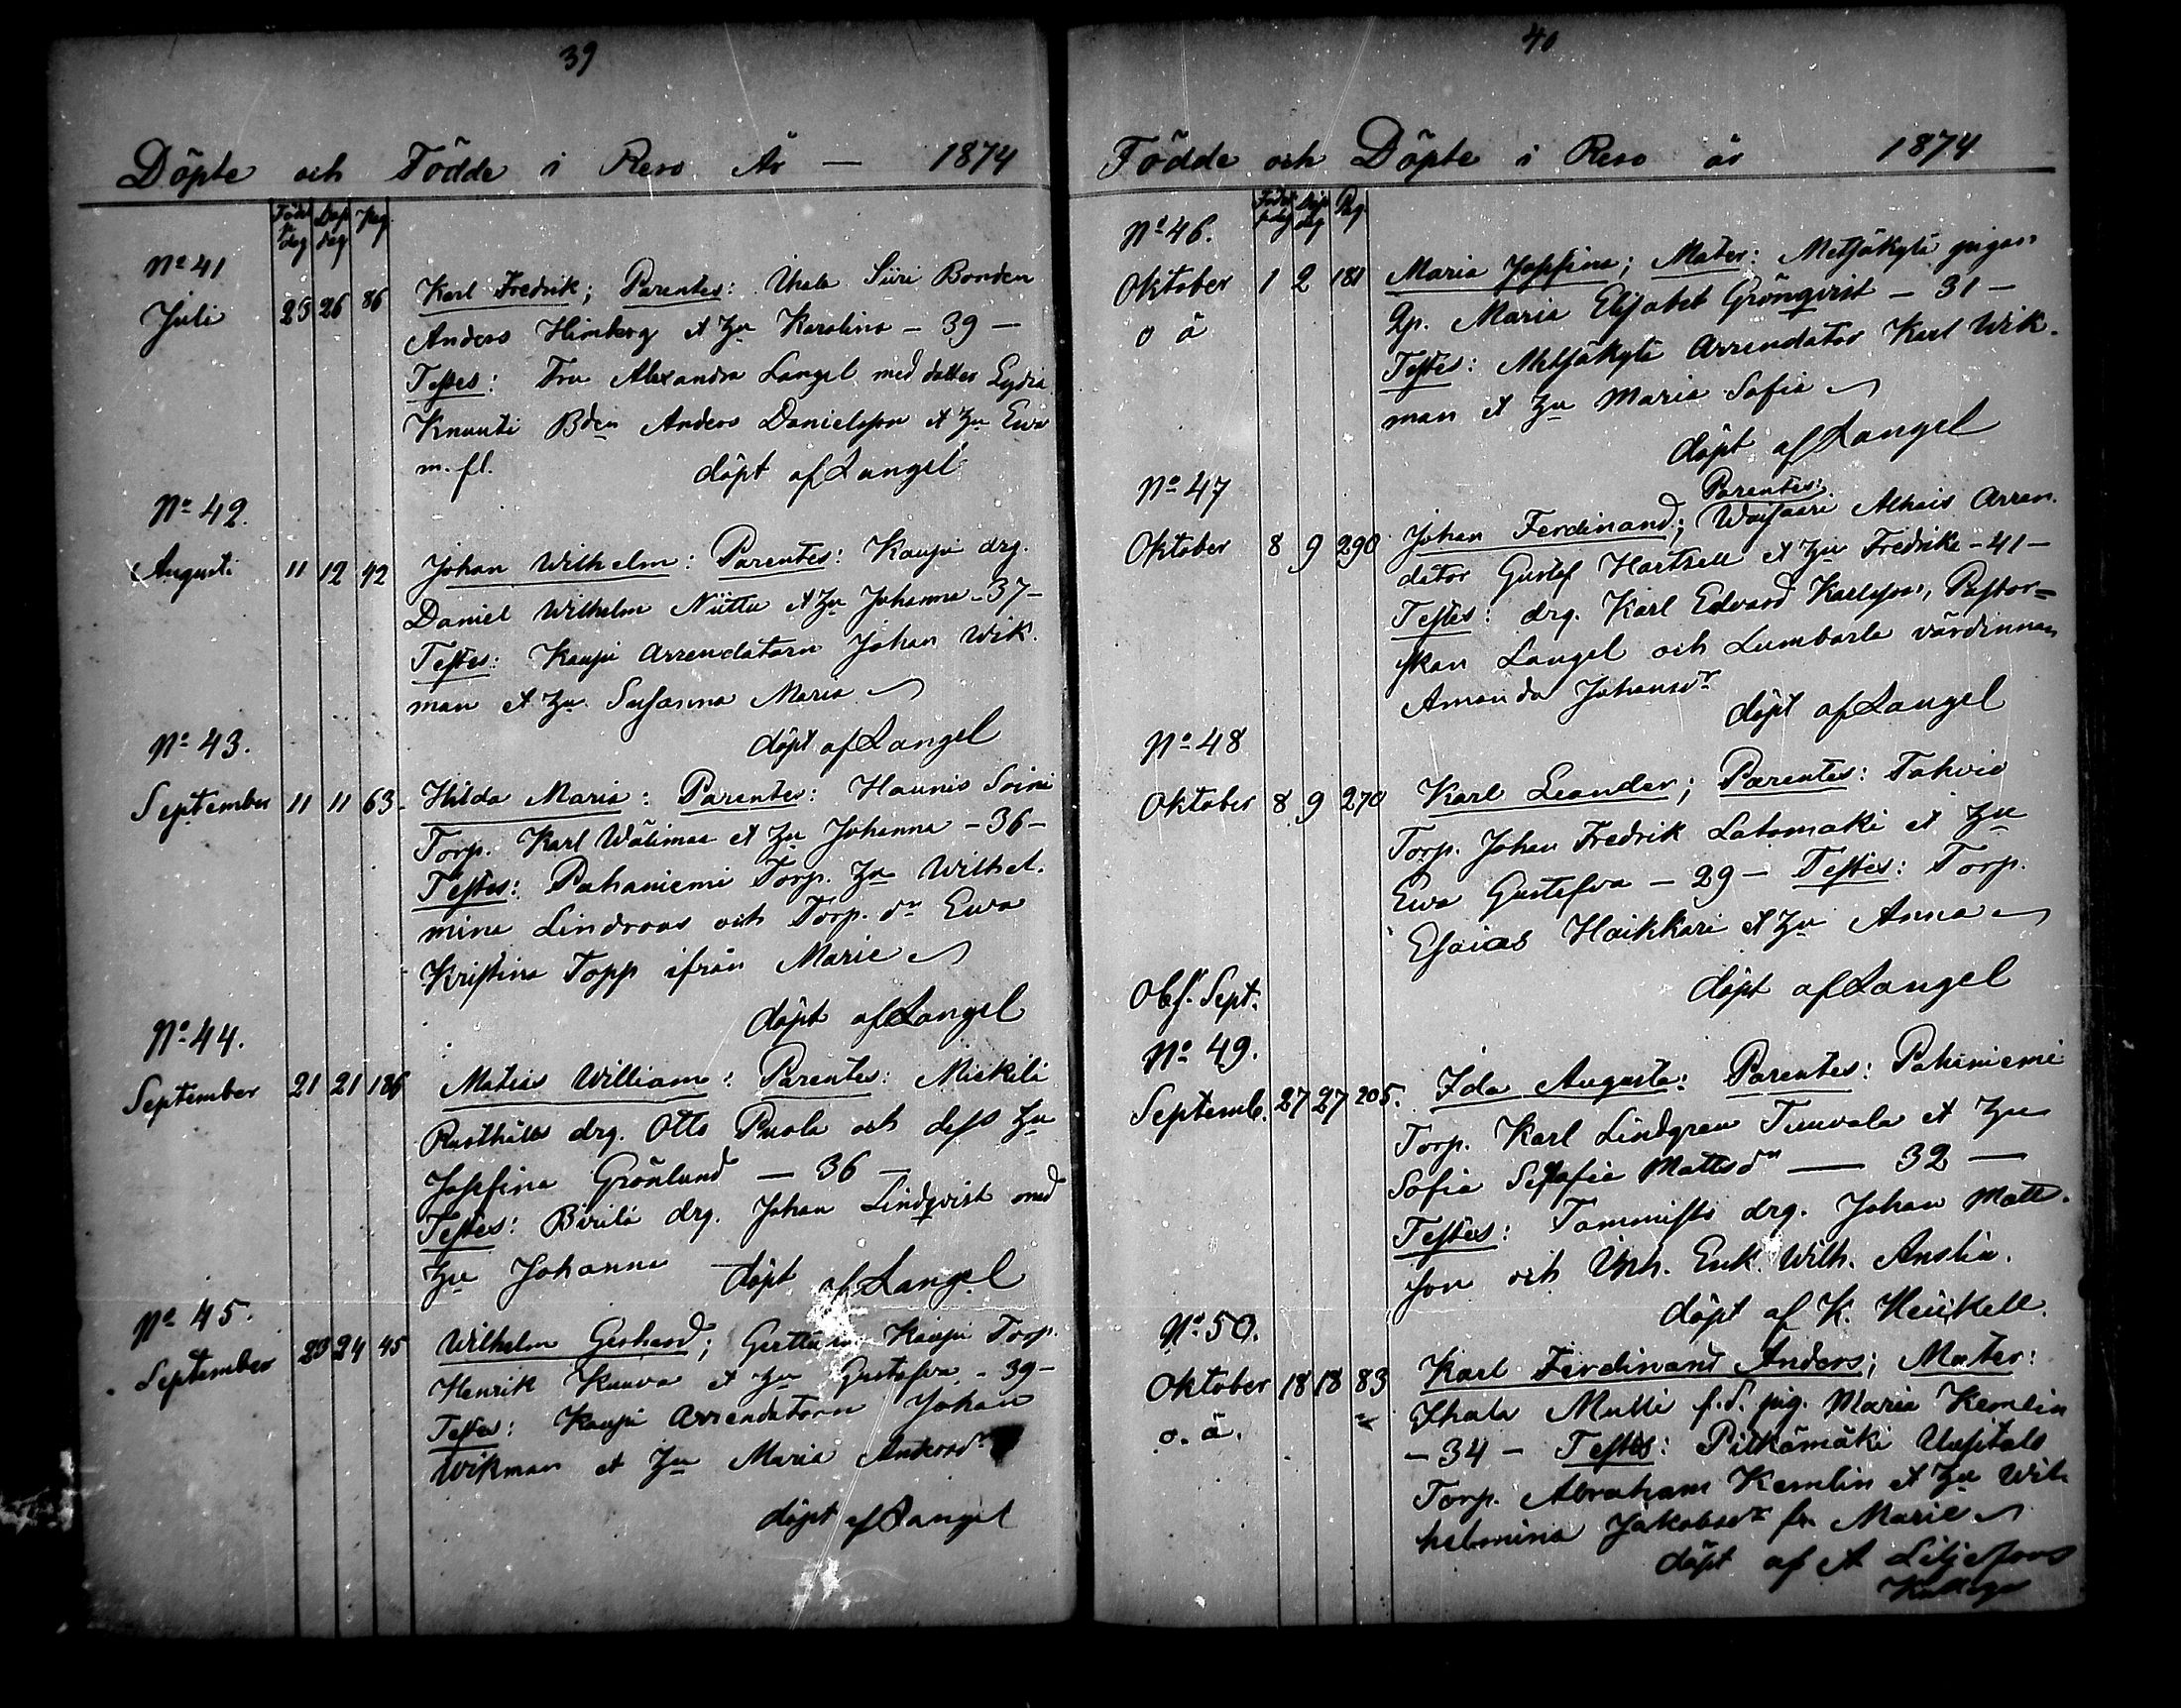 39
Döpte och Födde i Reso År — 1874
Föd dag Döp dag Pag.
No 41
Juli 25 26 86 Karl Fredrik; Parentes: Ihala Siiri Bonden
Anders Himberg et hu Karolina - 39 -
Testes: Fru Alexandra Langel med dotter Lydia
Knuuti Bden Anders Danielsson et hu Ewa
m. fl. döpt af Langel
No 42.
Augusti 11 12 42 Johan Wilhelm: Parentes: Kaupi drg.
Daniel Wilhelm Niittu et hu Johanna - 37 -
Testes: Kaupi Arrendatorn Johan Wik-
man et hu Susanna Maria
döpt af Langel
No 43.
September 11 11 63. Hilda Maria: Parentes: Haunis Soini
Torp. Karl Wälimaa et hu Johanna - 36 -
Testes: Pahaniemi Torp. hu Wilhel-
mina Lindroos och Torp. dr Ewa
Kristina Topp ifrån Marie
döpt af Langel
No 44.
September 21 21 186 Matias William: Parentes: Mickeli
Rusthålls drg. Otto Puola och dess hu
Josefina Grönlund — 36 —
Testes: Virilä drg. Johan Lindqvist med
hu Johanna döpt af Langel
No 45.
September 23 24 45 Wilhelm Gerhard; Kaupi Torp.
Henrik Kuuva et hu Gustafva - 39 -
Testes: Kaupi Arrendatorn Johan
Wikman et hu Maria
döpt af Langel
40
Födde och Döpte i Reso år 1874
Föd dag Döp dag Pag.
No 46.
Oktober 1 2 181 Maria Josefina; Mater: Metsäkylä pigan
o ä Qp. Maria Elisabet Grönqvist - 31 -
Testes: Metsäkylä Arrendator Karl Wik-
man et hu Maria Sofia
döpt af Langel
No 47
Parentes:
Oktober 8 9 290 Johan Ferdinand; Alhais Arren-
dator Gustaf Hartsell et hu Fredrika - 41 -
Testes: drg. Karl Edvard Karlsson, Pastor=
skan Langel och Lumparla värdinnan
Amanda Johansdr
döpt af Langel
No 48
Oktober 8 9 270 Karl Leander; Parentes: Tahvio
Torp. Johan Fredrik Latomaki et hu
Ewa Gustafva - 29 - Testes: Torp.
Esaias Haikkari et hu Anna
döpt af Langel
Obs. Sept.
No 49.
Septemb. 27 27 205. Ida Augusta: Parentes: Pahaniemi
Torp. Karl Lindgren Tuuvala et hu
Sofia Mattsdr — 32 —
Testes: Tammisto drg. Johan Matts-
son och Enk. Wilh.
döpt af K. Heickell.
No 50.
Oktober 18 18 83 Karl Ferdinand Anders; Mater:
o. ä. Ihala Mulli f.d. pig. Maria Kemlin
- 34 - Testes: Pitkämäki
Torp. Abraham Kemlin et hu Wil-
helmina Jakobsdr fr. Marie
döpt af A Liljefors